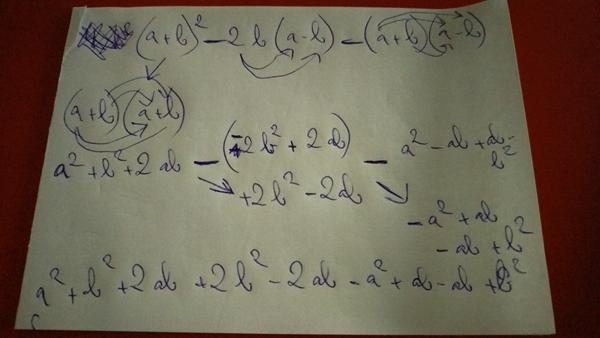 (a+b)² - 2b(a-b) - (a+b)(a-b)
(a+b)(a+b)
a² + b² + 2ab - (-2b² + 2ab) - a² - ab + ab - b²
+2b² - 2ab
-a² + ab
-ab + b²
a² + b² + 2ab + 2b² - 2ab - a² + ab - ab + b²